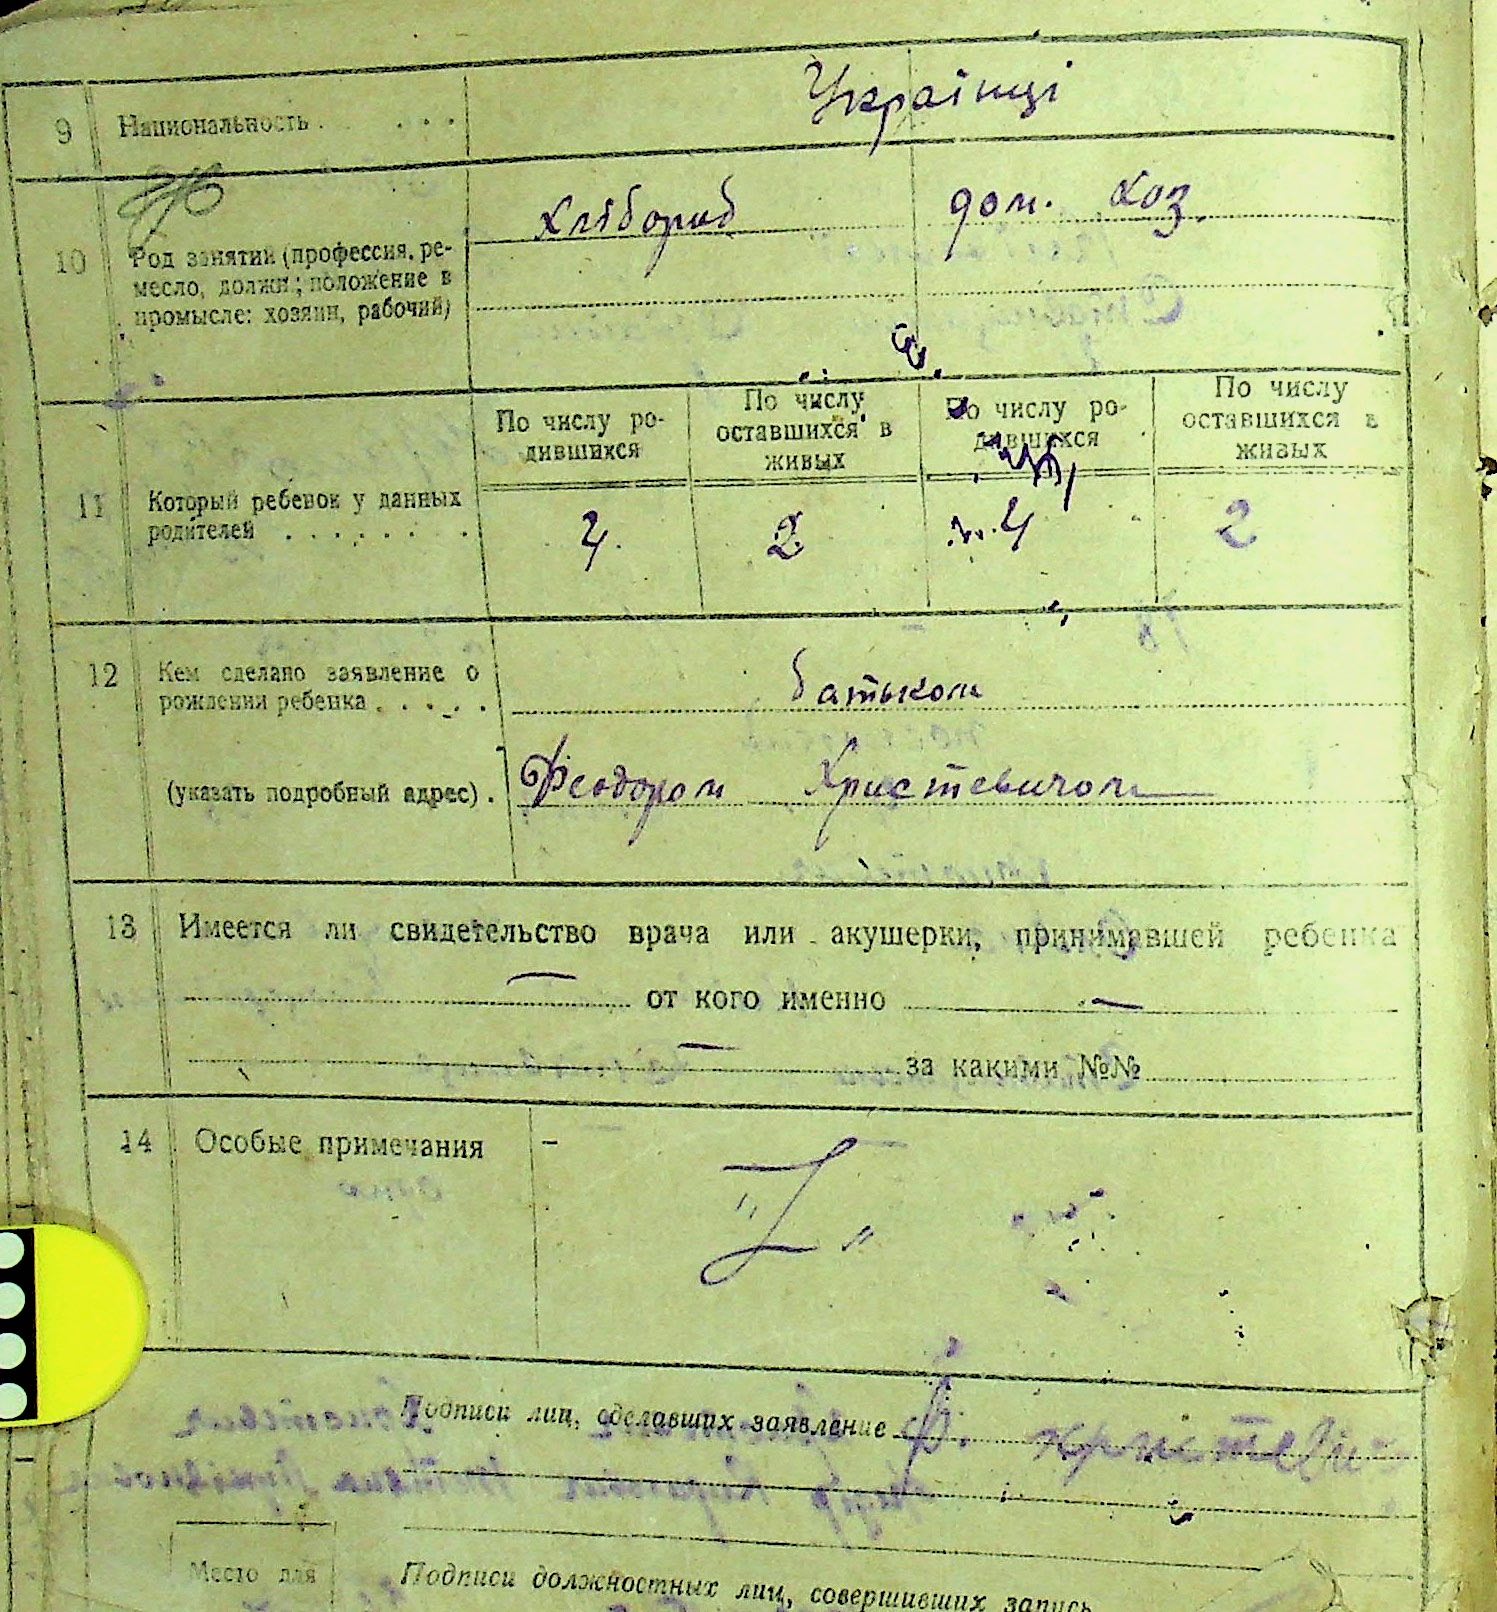 9 Национальность . . . . . Українці
10 Род занятий (профессия, ре-
месло, должн; положение в
промысле: хозяин, рабочий)
хлібороб дом. хоз.
11 Который ребенок у данных
родителей . . . . . . .
По числу ро-
дившихся
По числу
оставшихся в
живых
По числу ро-
дившихся
По числу
оставшихся в
живых
4. 2 4 2
12 Кем сделано заявление о
рождении ребенка . . . . . батьком
(указать подробный адрес) . Феодором Христевичом
13 Имеется ли свидетельство врача или акушерки, принимавшей ребенка
— от кого именно —
— за какими №№
14 Особые примечания –
" Z "
Подписи лиц, сделавших заявление Ф. Христевич
Место для
Подписи должностных лиц, совершивших запись